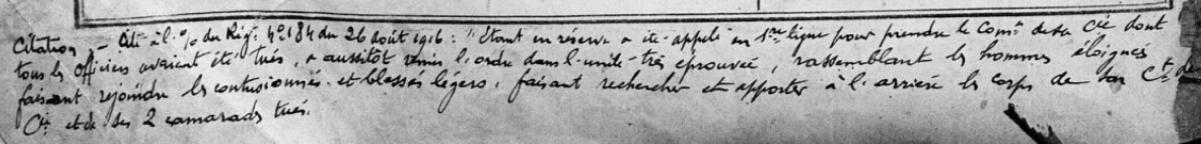 Citation :- Cité à l'% du Rég. N° 184 du 26 août 1916 : " Etant en réserve a été appelé en 1ère ligne pour prendre le Comt de sa Cie dont
tous les officiers avaient été tués, a aussitôt remis l'ordre dans l'unité très éprouvée, rassemblant les hommes éloignés
faisant rejoindre les contusionnés et blessés légers, faisant rechercher et apporter à l'arrière les corps de son Ct de
Cie et de ses 2 camarades tués.